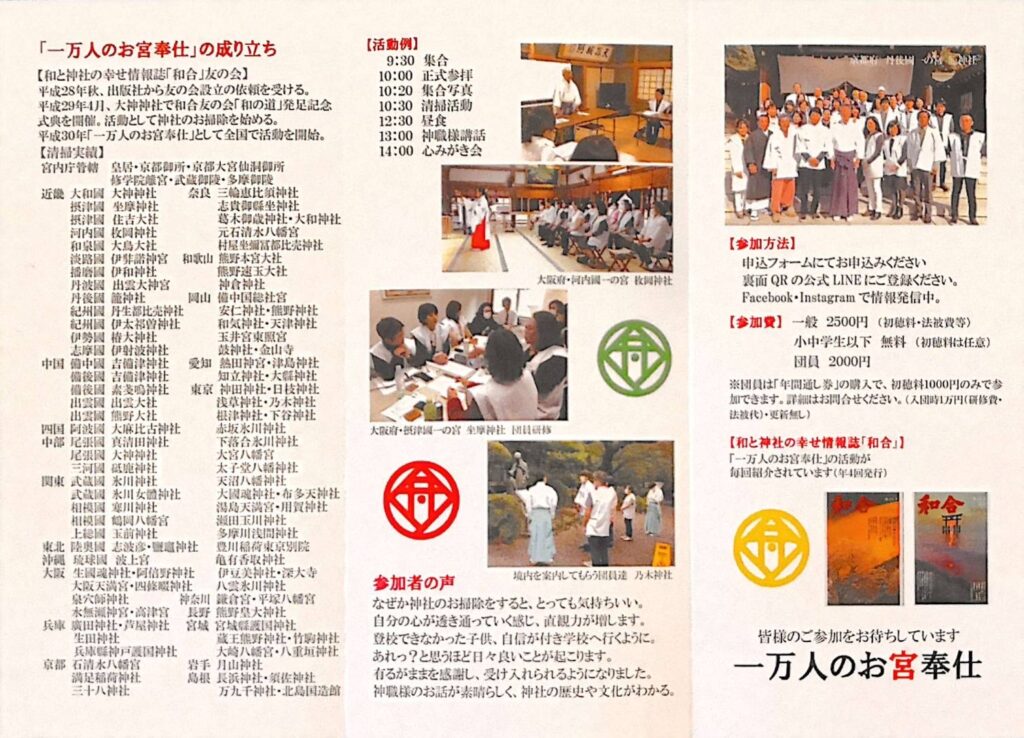 「一万人のお宮奉仕」の成り立ち
【和と神社の幸せ情報誌「和合」友の会】
平成28年秋、出版社から友の会設立の依頼を受ける。
平成29年4月、大神神社で和合友の会「和の道」発足記念
式典を開催。活動として神社のお掃除を始める。
平成30年「一万人のお宮奉仕」として全国で活動を開始。
【清掃実績】
宮内庁管轄 皇居・京都御所・京都大宮仙洞御所
修学院離宮・武蔵御陵・多摩御陵
近畿 大和國 大神神社 奈良 三輪恵比須神社
摂津國 坐摩神社 志貴御縣坐神社
摂津國 住吉大社 葛木御歳神社・大和神社
河内國 枚岡神社 元石清水八幡宮
和泉國 大鳥大社 村屋坐彌冨都比売神社
淡路國 伊弉諾神宮 和歌山 熊野本宮大社
播磨國 伊和神社 熊野速玉大社
丹波國 出雲大神宮 神倉神社
丹後國 籠神社 岡山 備中国総社宮
紀州國 丹生都比売神社 安仁神社・熊野神社
紀州國 伊太祁曽神社 和気神社・天津神社
伊勢國 椿大神社 玉井宮東照宮
志摩國 伊射波神社 鼓神社・金山寺
中国 備中國 吉備津神社 愛知 熱田神宮・津島神社
備後國 吉備津神社 知立神社・大縣神社
備後國 素戔嗚神社 東京 神田神社・日枝神社
出雲國 出雲大社 浅草神社・乃木神社
出雲國 熊野大社 根津神社・下谷神社
四国 阿波國 大麻比古神社 赤坂氷川神社
中部 尾張國 真清田神社 下落合氷川神社
尾張國 大神神社 大宮八幡宮
三河國 砥鹿神社 太子堂八幡神社
関東 武蔵國 氷川神社 天沼八幡神社
武蔵國 氷川女體神社 大國魂神社・布多天神社
相模國 寒川神社 湯島天満宮・用賀神社
相模國 鶴岡八幡宮 瀬田玉川神社
上総國 玉前神社 多摩川浅間神社
東北 陸奥國 志波彦・鹽竈神社 豊川稲荷東京別院
沖縄 琉球國 波上宮 亀有香取神社
大阪 生國魂神社・阿倍野神社 伊豆美神社・深大寺
大阪天満宮・四條畷神社 八雲氷川神社
泉穴師神社 神奈川 鎌倉宮・平塚八幡宮
水無瀬神宮・高津宮 長野 熊野皇大神社
兵庫 廣田神社・芦屋神社 宮城 宮城縣護国神社
生田神社 蔵王熊野神社・竹駒神社
兵庫縣神戸護国神社 大崎八幡宮・八重垣神社
京都 石清水八幡宮 岩手 月山神社
満足稲荷神社 島根 長浜神社・須佐神社
三十八神社 万九千神社・北島国造館
【活動例】
9:30 集合
10:00 正式参拝
10:20 集合写真
10:30 清掃活動
12:30 昼食
13:00 神職様講話
14:00 心みがき会
大阪府・河内國一の宮 枚岡神社
大阪府・摂津國一の宮 坐摩神社 団員研修
境内を案内してもらう団員達 乃木神社
参加者の声
なぜか神社のお掃除をすると、とっても気持ちいい。
自分の心が透き通っていく感じ、直観力が増します。
登校できなかった子供、自信が付き学校へ行くように。
あれっ?と思うほど日々良いことが起こります。
有るがままを感謝し、受け入れられるようになりました。
神職様のお話が素晴らしく、神社の歴史や文化がわかる。
京都府 丹後國一の宮 籠神社
【参加方法】
申込フォームにてお申込みください
裏面QRの公式LINEにご登録ください。
Facebook・Instagramで情報発信中。
【参加費】 一般 2500円 (初穂料・法被費等)
小中学生以下 無料 (初穂料は任意)
団員 2000円
※団員は「年間通し券」の購入で、初穂料1000円のみで参
加できます。詳細はお問合せください。(入団時1万円(研修費・
法被代)・更新無し)
【和と神社の幸せ情報誌「和合」】
「一万人のお宮奉仕」の活動が
毎回紹介されています(年4回発行)
和合
和合
皆様のご参加をお待ちしています
一万人のお宮奉仕